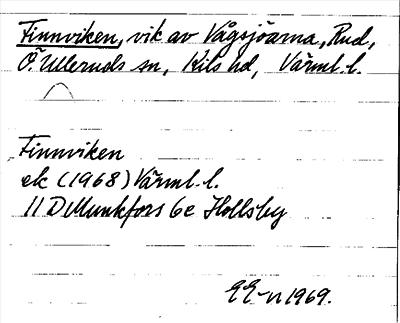 Finnviken, vik av Vågsjöarna, Rud,
Ö. Ulleruds sn, Kils hd, Värml. l.
Finnviken
ek (1968) Värml. l.
11 D Munkfors 6e Hollsby
1969.